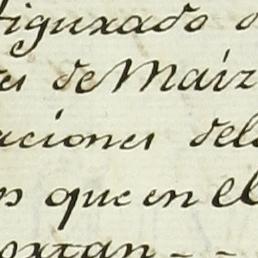 figurado
de Maiz
aciones del
que en el
ortan - -